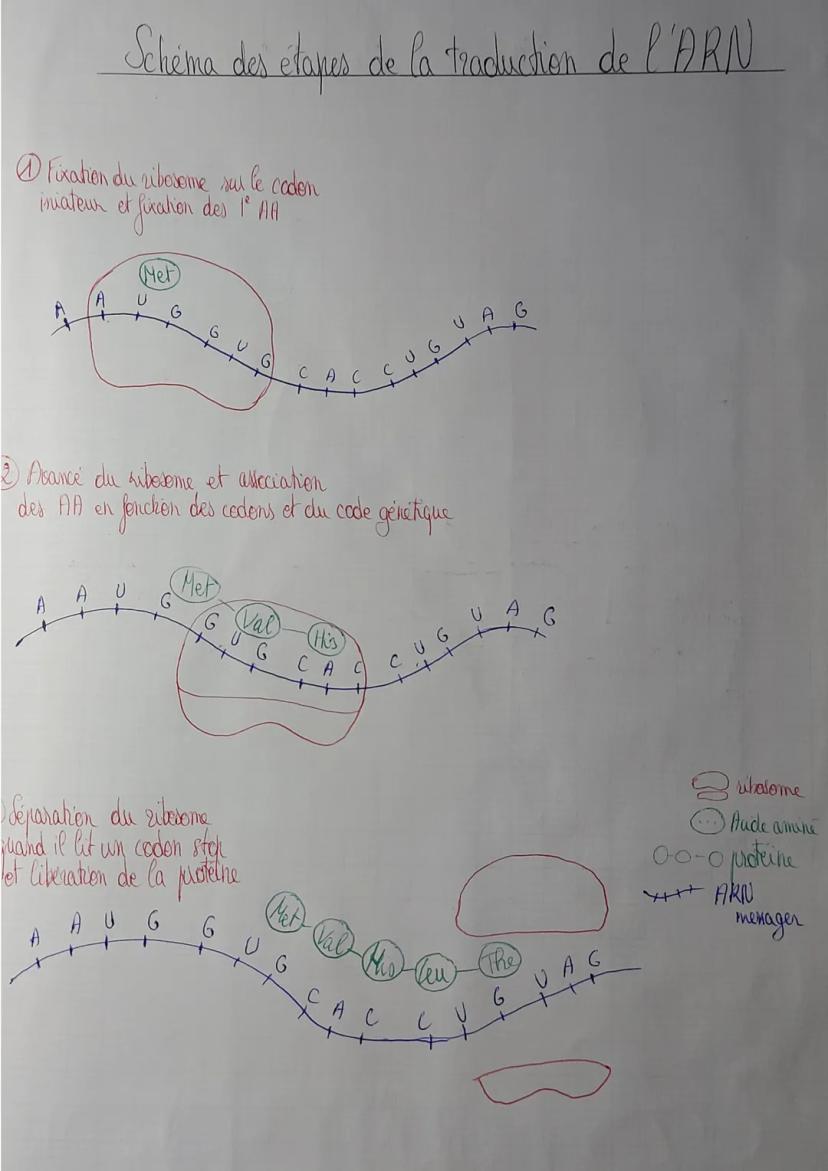 Schéma des étapes de la traduction de l'ARN
① Fixation du ribosome sur le codon
iniateur et fixation des 1° AA
Met
A A U G G U G C A C C U G U A G
② Avancé du ribosome et association
des AA en fonction des codons et du code génétique
Met Val His
A A U G G U G C A C C U G U A G
Séparation du ribosome
quand il lit un codon stop
et libération de la protéine
ribosome
Acide aminé
protéine
ARN
messager
Met Val His Leu The
A A U G G U G C A C C U G U A G